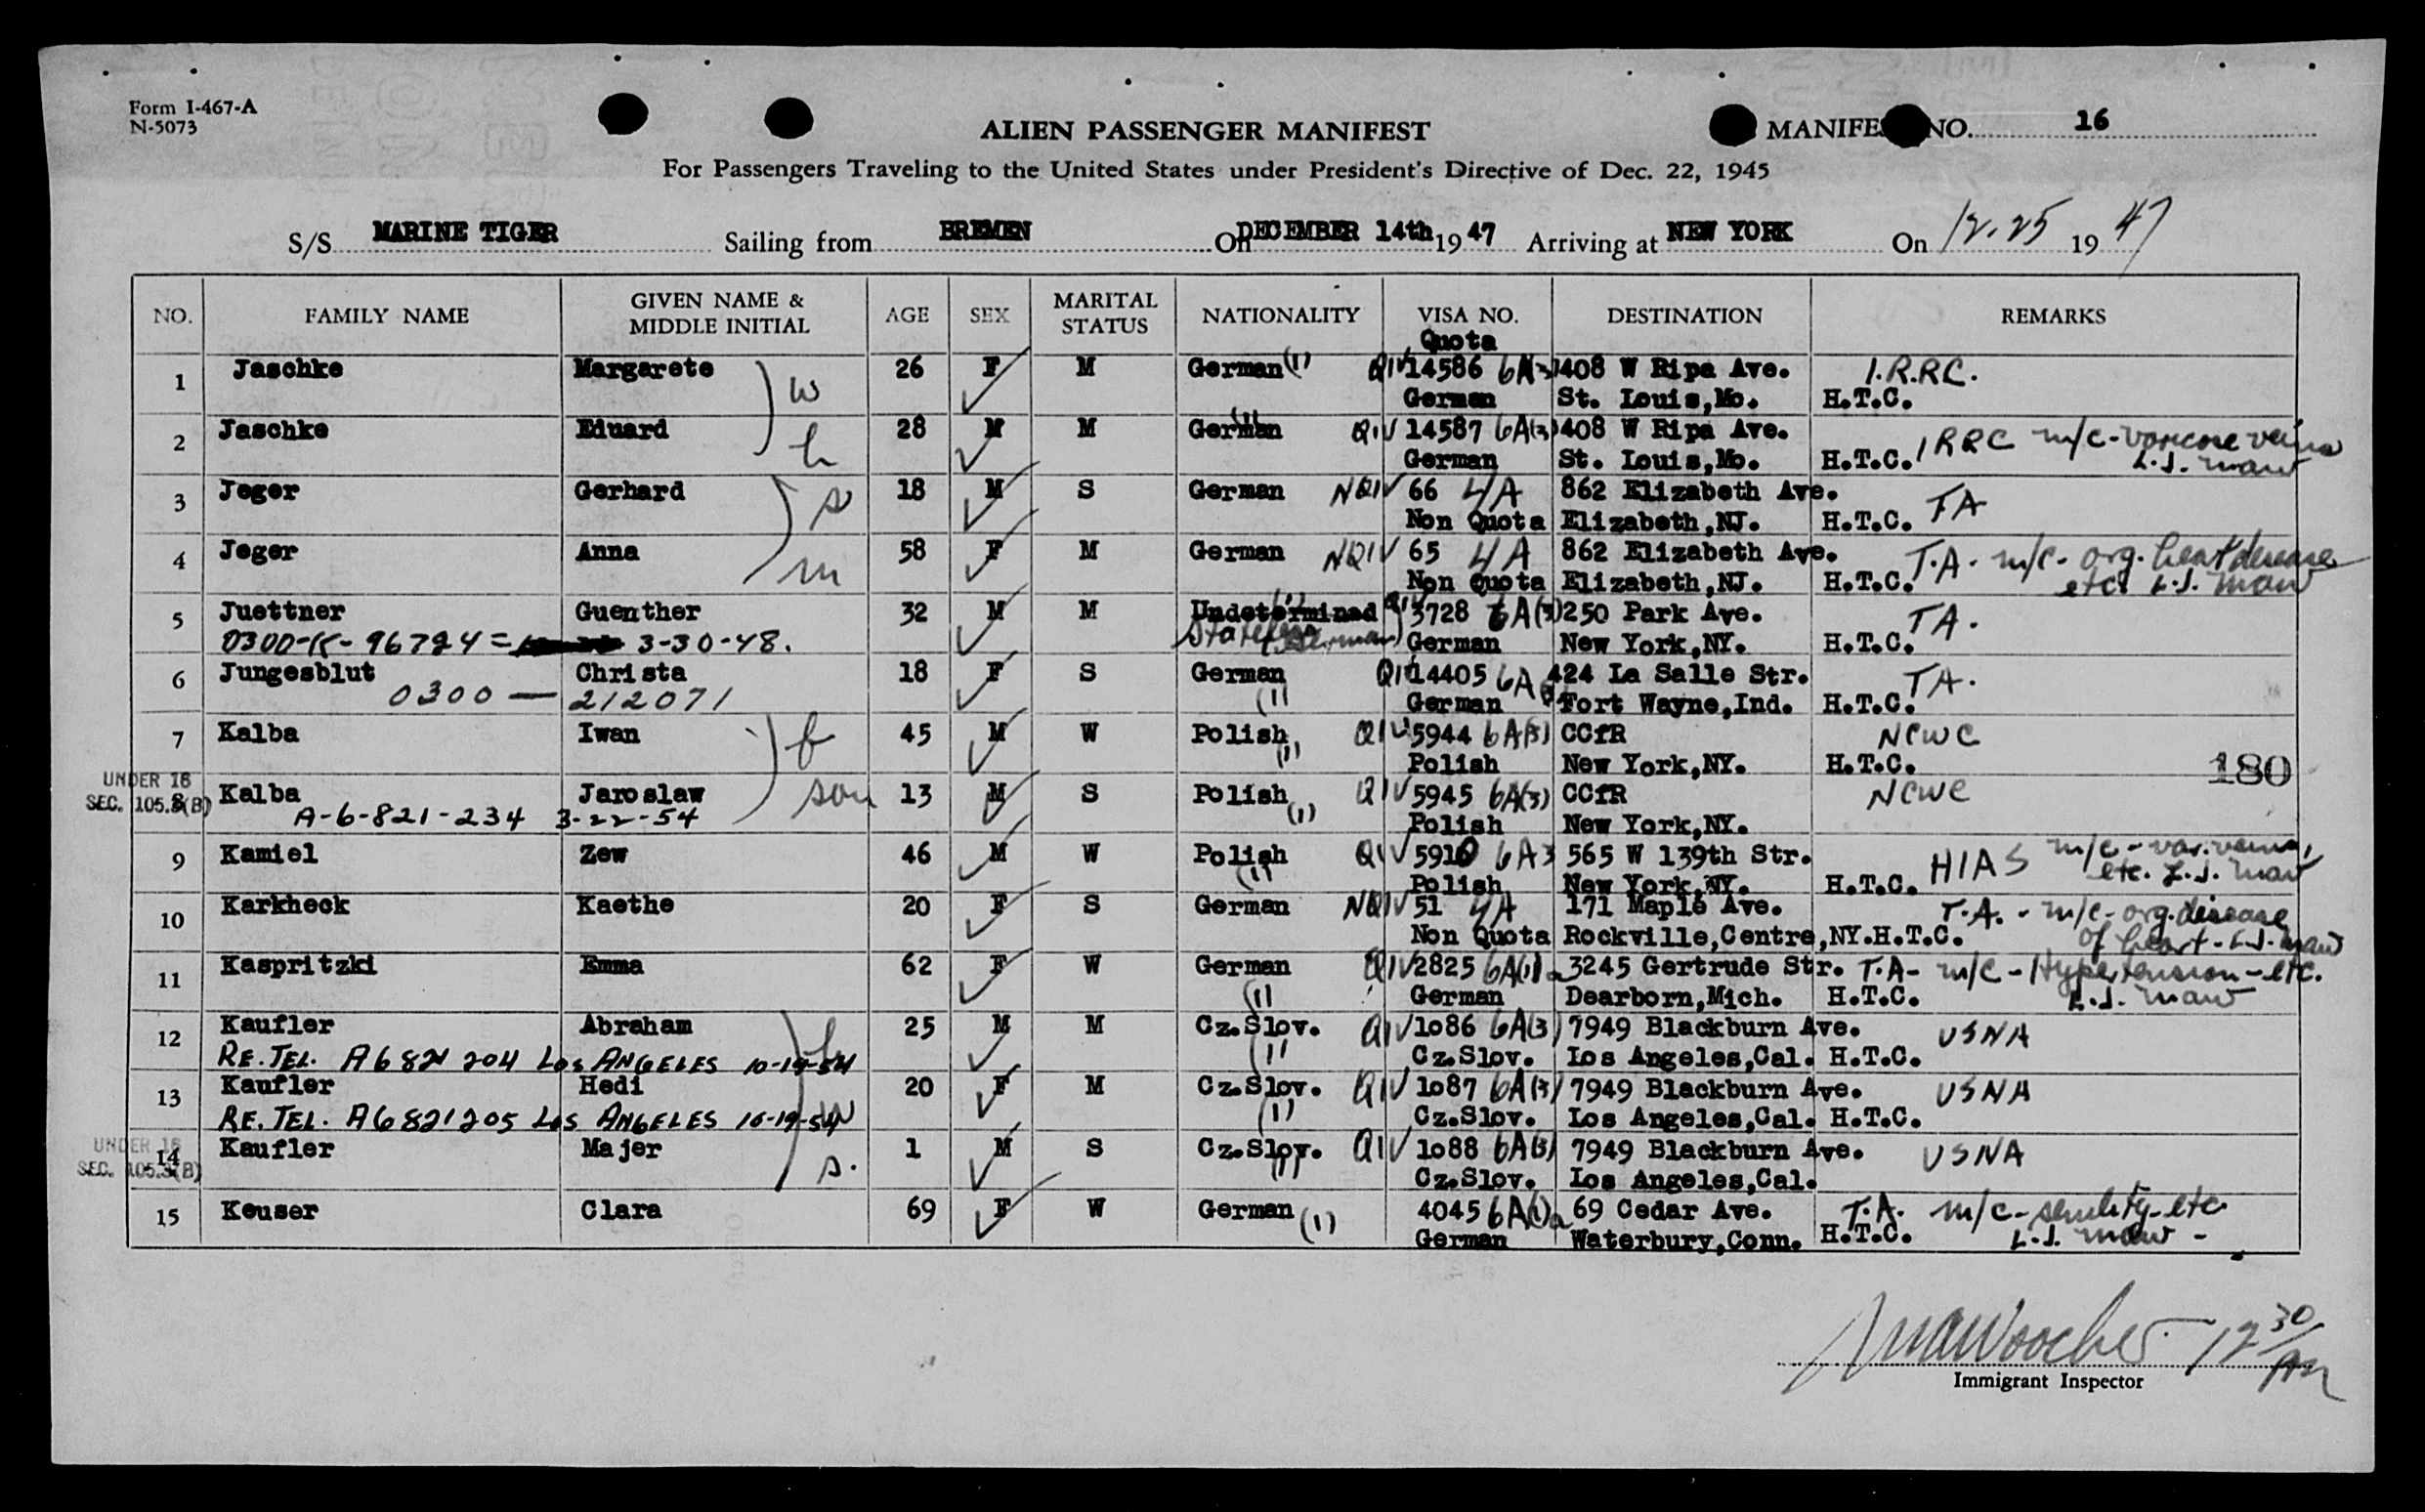 Form I-467-A
N-5073
ALIEN PASSENGER MANIFEST
MANIFE NO. 16
For Passengers Traveling to the United States under President's Directive of Dec. 22, 1945
S/S MARINE TIGER Sailing from BREMEN On DECEMBER 14th 19 47 Arriving at NEW YORK On 12-25 19 47
NO. FAMILY NAME GIVEN NAME & MIDDLE INITIAL AGE SEX MARITAL STATUS NATIONALITY VISA NO. DESTINATION REMARKS
Quota
1 Jaschke Margarete w 26 F M German (1) QIV 14586 6A3 408 W Ripa Ave. I.R.R.C.
German St. Louis,Mo. H.T.C.
2 Jaschke Eduard h 28 M M German (1) QIV 14587 6A(3) 408 W Ripa Ave. IRRC m/c-varicose veins
German St. Louis,Mo. H.T.C. L.J. maw
3 Jeger Gerhard s 18 M S German NQIV 66 4A 862 Elizabeth Ave. TA
Non Quota Elizabeth,NJ. H.T.C.
4 Jeger Anna m 58 F M German NQIV 65 4A 862 Elizabeth Ave. T.A. m/c- org. heart disease
Non Quota Elizabeth,NJ. H.T.C. etc. L.J. maw
5 Juettner Guenther 32 M M Undetermined QIV 3728 6A(3) 250 Park Ave. TA.
0300-K-96724= 3-30-48. Stateless German New York,NY. H.T.C.
6 Jungesblut Christa 18 F S German (1) QIV 14405 6A 424 La Salle Str. TA.
0300 — 212071 German Fort Wayne,Ind. H.T.C.
7 Kalba Iwan f 45 M W Polish (1) QIV 5944 6A(3) CCfR NCWC
Polish New York,NY. H.T.C.
180
UNDER 16
SEC. 105.3(B)
8 Kalba Jaroslaw son 13 M S Polish (1) QIV 5945 6A(3) CCfR NCWC
A-6-821-234 3-22-54 Polish New York,NY.
9 Kamiel Zew 46 M W Polish (1) QIV 5910 6A3 565 W 139th Str. HIAS m/c-var. veins,
Polish New York,NY. H.T.C. etc. L.J. maw
10 Karkheck Kaethe 20 F S German NQIV 51 4A 171 Maple Ave. T.A. - m/c- org. disease
Non Quota Rockville,Centre,NY. H.T.C. of heart - L.J. maw
11 Kaspritzki Emma 62 F W German (1) QIV 2825 6A(1)a 3245 Gertrude Str. T.A- m/c-Hypertension-etc.
German Dearborn,Mich. H.T.C. L.J. maw
12 Kaufler Abraham 25 M M Cz.Slov. (1) QIV 1086 6A(3) 7949 Blackburn Ave. USNA
RE. TEL. A6 821 204 LOS ANGELES 10-19-54 Cz.Slov. Los Angeles,Cal. H.T.C.
13 Kaufler Hedi w 20 F M Cz.Slov. (1) QIV 1087 6A(3) 7949 Blackburn Ave. USNA
RE. TEL. A6821205 LOS ANGELES 10-19-54 Cz.Slov. Los Angeles,Cal. H.T.C.
UNDER 16
SEC. 105.3(B)
14 Kaufler Majer s. 1 M S Cz.Slov. (1) QIV 1088 6A(3) 7949 Blackburn Ave. USNA
Cz.Slov. Los Angeles,Cal.
15 Keuser Clara 69 F W German (1) 4045 6A(1)a 69 Cedar Ave. T.A. m/c-senility-etc
German Waterbury,Conn. H.T.C. L.J. maw -
12 30
Immigrant Inspector